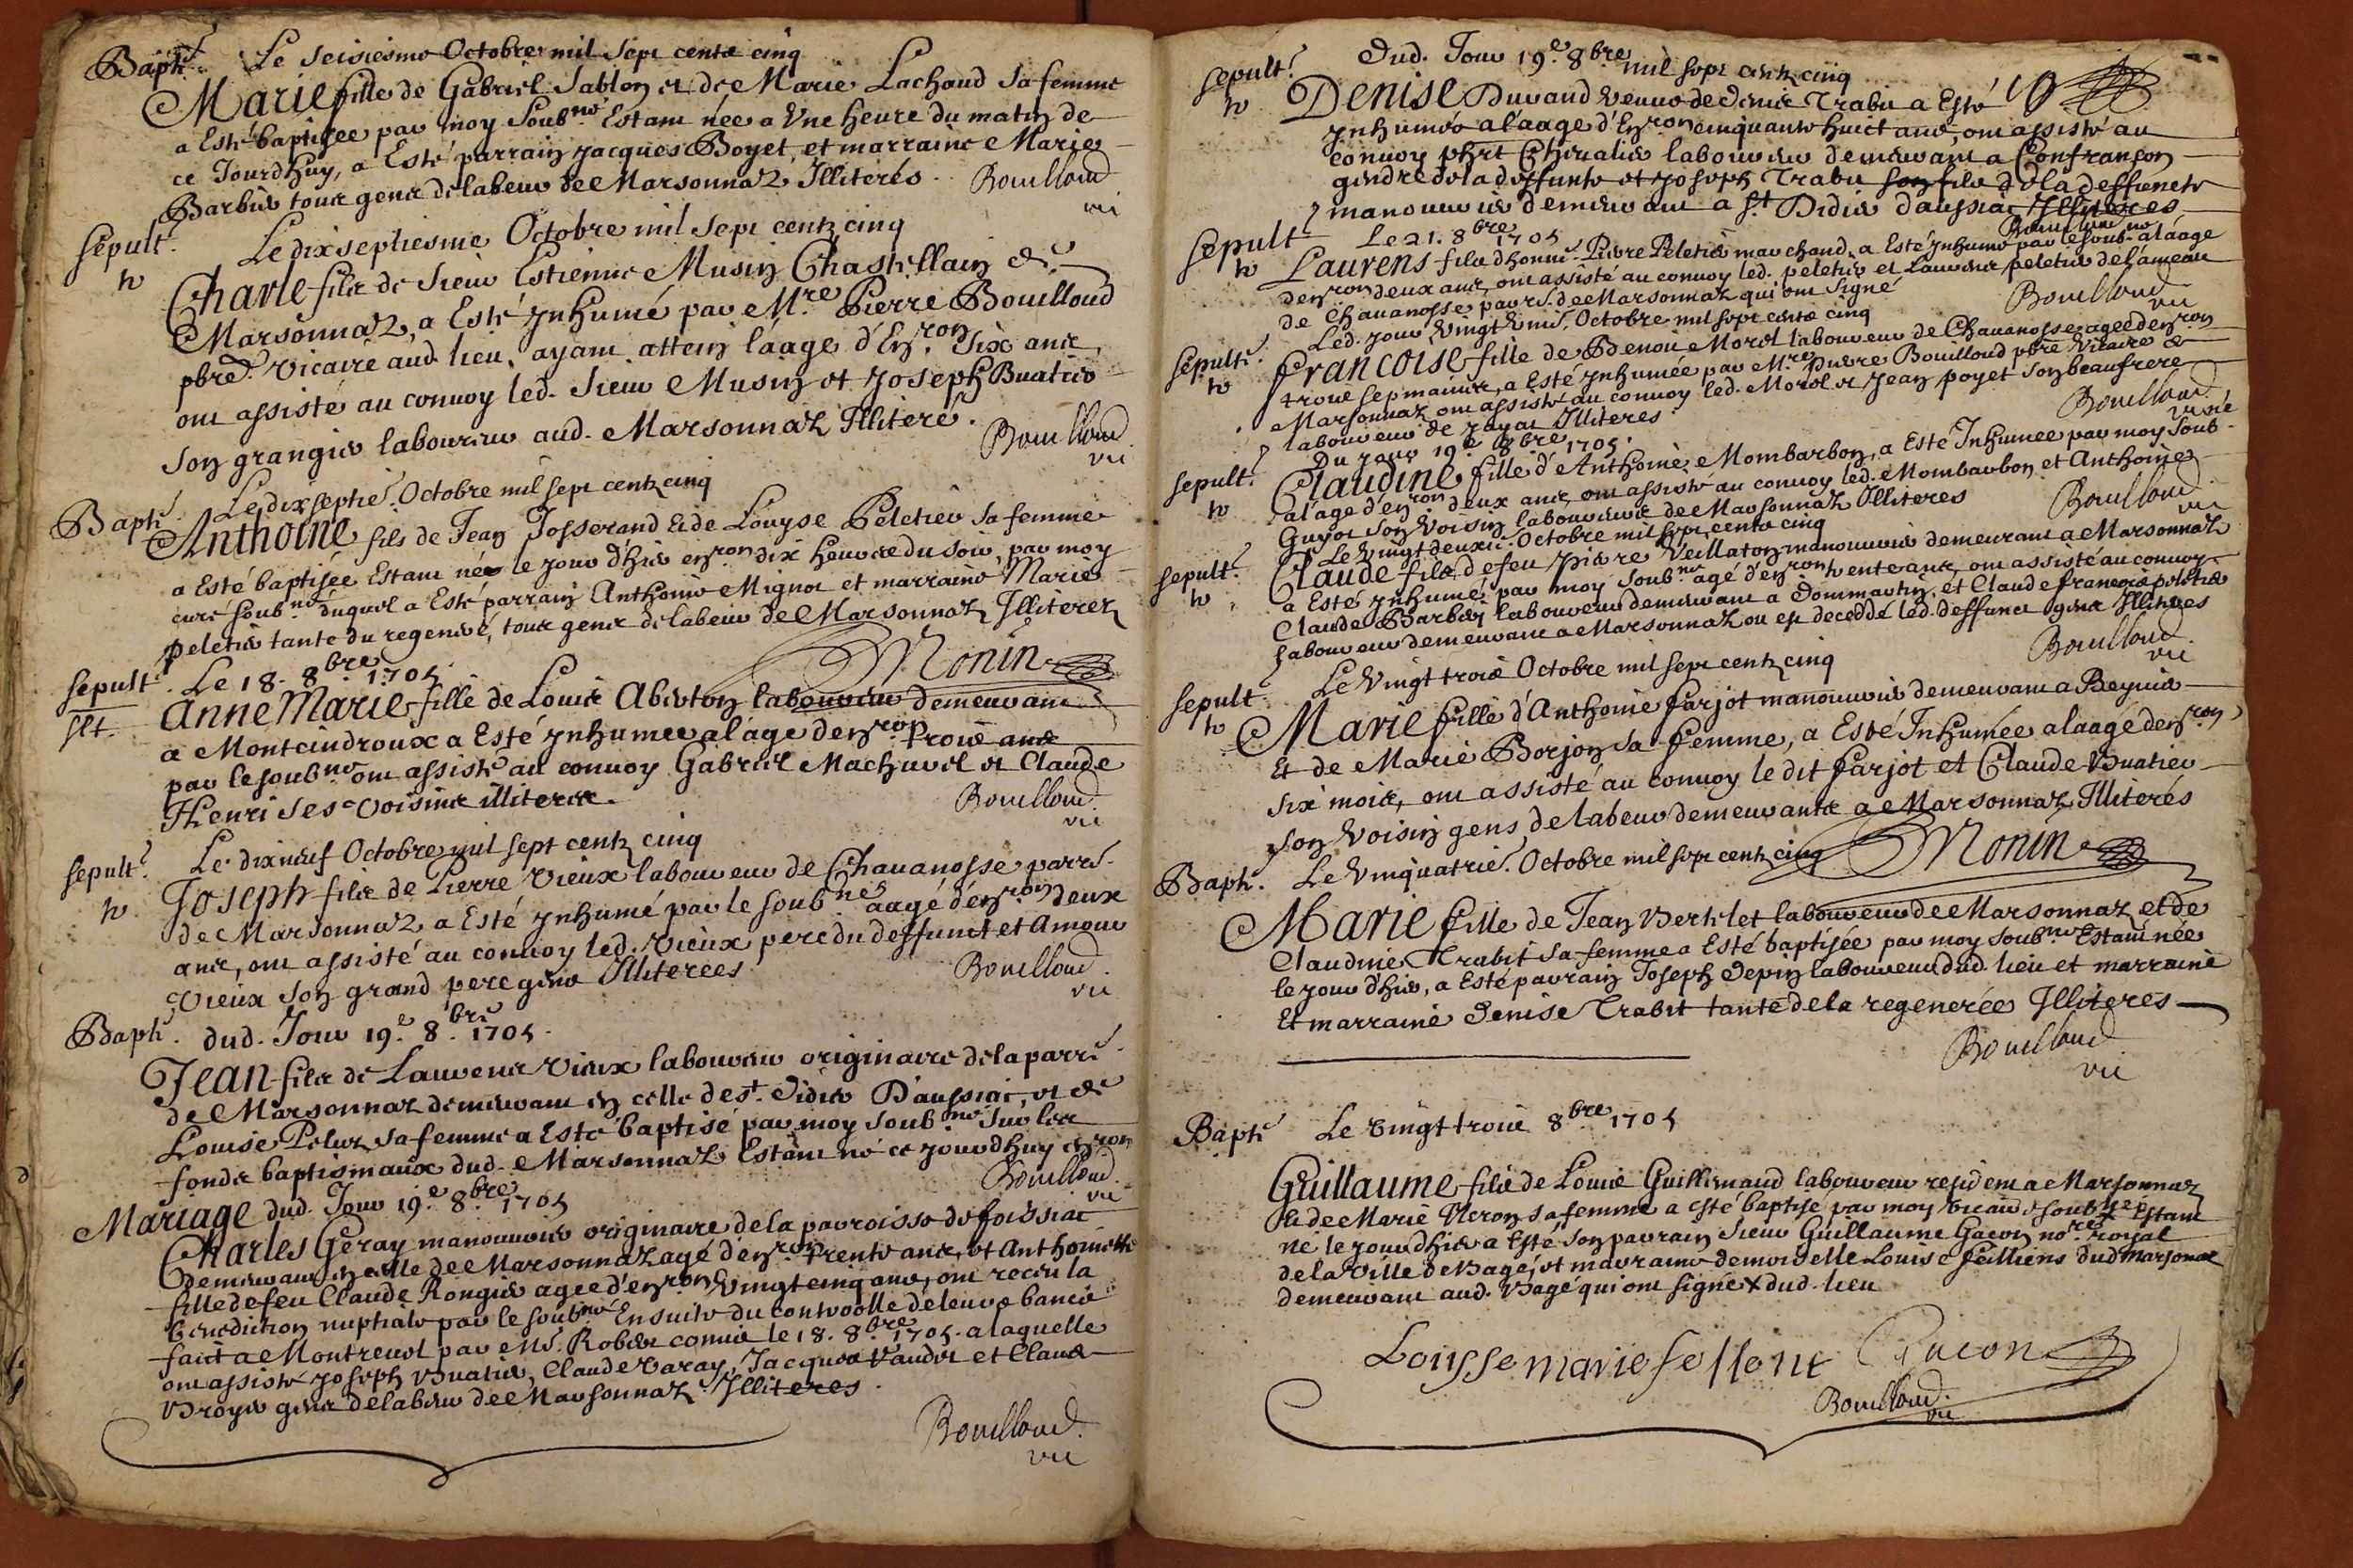 Bapt.é Le seisiesme Octobre mil sept cents cinq
Marie fille de Gabriel Sablon et de Marie Lachaud sa femme
a Esté baptisée par moy Soub.né Estant née a Une heure du matin de
ce Jourdhuy, a Esté parrain Jacques Boyet, et marraine Marie
Barbier tous gens de labeur de Marsonnaz Illiterés. Bouilloud
vic
Sepult.é Le dix septiesme Octobre mil sept centz cinq
Charle fils de Sieur Estienne Musin Chastellain de
Marsonnaz, a Esté ynhumé par M.re Pierre Bouilloud
pbre. Vicaire aud. lieu, ayant attein l'aage d'En.ron Six ans,
ont assisté au convoy led. Sieur Musin et Joseph Buatier
Son granger laboureur aud. Marsonnaz Illiteré.
Bouilloud
vic
Bapt.é Le dix septie. Octobre mil sept centz cinq
Anthoine fils de Jean Josserand et de Louyse Peletier sa femme
a Esté baptisée Estant née le jour d'hier en.ron dix heures du soir, par moy
curé soub.né duquel a Esté parrain Anthoine Mignot et marraine Marie
peletier tante du regeneré, tous gens de labeur de Marsonnaz Illiterez
Monin
Sepult.é Le 18. 8.bre 1705
Anne Marie fille de Louis Abiston laboureur demeurant
a Montcindroux a Esté ynhumee al'age den.ron trois ans
par le soub.né ont assisté au convoy Gabriel Machurel et Claude
Henri ses voisins illiteres.
Bouilloud.
vic
Sepult.é Le dixneuf Octobre mil sept centz cinq
Joseph fils de Pierre Vieux laboureur de Chavanosse parr.
de Marsonnaz, a Esté ynhumé par le soub.né aagé d'en.ron deux
ans, ont assisté au convoy led. Vieux pere du deffunct et Amour
Vieux son grand pere gens Illiterees
Bouilloud.
vic
Bapt.é dud. Jour 19.e 8.bre 1705.
Jean fils de Laurens Vieux laboureur originaire de la parr.
de Marsonnaz demeurant en celle de S.t Didier D'aussiat, et de
Louise Peluz sa femme a Esté baptisé par moy soub.né Sur les
fonds baptismaux dud. Marsonnaz Estant né ce jourdhuy en.ron
Bouilloud.
vic
Mariage dud. Jour 19.e 8.bre 1705
Charles Geray manouvrier originaire de la parroisse de foissiat
demeurant en celle de Marsonnaz agé d'en.ron trente ans, et Anthoinette
fille de feu Claude Rongier agee d'en.ron Vingt cinq ans, ont receu la
benediction nuptiale par le soub.né Ensuite du controolle de leurs bancs
fait a Montrevel par M.e Robin comis le 18. 8.bre 1705. a laquelle
ont assisté Joseph Buatier, Claude Varay, Jacques Vaudet et Claude
Broyer gens de labeur de Marsonnaz Illiteres.
Bouilloud.
vic
Sepult.é Dud. Jour 19.e 8.bre mil sept centz cinq
Denise Duvaud Veuve de Denis Trabit a Esté
ynhumée a l'aage d'En.ron cinquante huict ans, ont assisté au
convoy phil. Chevalier laboureur demeurant a Confrançon
gendre de la deffunte et Joseph Trabit son fils de la deffuncte
manouvrier demeurant a S.t Didier d'aussiat Illiteres
Bouilloud
Sepult.é Le 21. 8.bre 1705
Laurens fils d'honne. Pierre Peletier marchand, a Esté ynhumé par le soub.né a l'aage
den.ron deux ans, ont assisté au convoy led. peletier et Laurens peletier de lameau
de Chavanosse parr. de Marsonnaz qui ont signé
Bouilloud
vic
Sepult.é Led. jour Vingt Unie. Octobre mil sept cents cinq
Francoise fille de Benoit Morel laboureur de Chavanosse agee den.ron
trois sepmaines, a Esté ynhumée par M.re Pierre Bouilloud pbre Vicaire de
Marsonnaz ont assisté au convoy led. Morel et Jean poyet son beaufrere
laboureur de Jayat Illiteres.
Bouilloud.
vic
Sepult.é Du jour 19.e 8.bre 1705.
Claudine fille d'Anthoine Mombarbon, a Esté Inhumee par moy soub.né
al'age d'en.ron deux ans, ont assisté au convoy led. Mombarbon et Anthoine
Guyot son Voisin laboureurs de Marsonnaz Illiteres
Bouilloud.
vic
Sepult.é Le Vingt deuxie. Octobre mil sept cents cinq
Claude fils de feu Pierre Veillaton manouvrier demeurant a Marsonnaz
a Esté ynhumé par moy soub.né agé d'en.ron trente ans, ont assisté au convoy
Claude Barbery laboureur demeurant a Dommartin, et Claude francois peletier
laboureur demeurant a Marsonnaz ou est decedé led. deffunct gens Illiteres
Bouilloud.
vic
Sepult.é Le Vingt trois Octobre mil sept centz cinq
Marie fille d'Anthoine farjot manouvrier demeurant a Beynis
Et de Marie Borjon sa femme, a Esté Inhumée a laage den.ron
six mois, ont assisté au convoy le dit farjot et Claude Buatier
son Voisin gens de labeur demeurants a Marsonnaz Illiterés
Monin
Bapt.é Le Vinquatrie. Octobre mil sept centz cinq
Marie fille de Jean Berthelet laboureur de Marsonnaz et de
Claudine Trabit sa femme a Esté baptisée par moy soub.né Estant née
le jour d'hier, a Esté parrain Joseph Depin laboureur dud. lieu et marraine
Et marraine Denise Trabit tante de la regenerée Illiteres
Bouilloud
vic
Bapt.é Le Vingt trois 8.bre 1705
Guillaume fils de Louis Guillernaud laboureur resident a Marsonnaz
Et de Marie Neron sa femme a esté baptisé par moy vicaire soub.né Estant
né le jour d'hier a Esté son parrain Sieur Guillaume Gacon no.re royal
de la Ville de Bagé, et marraine demoiselle Louise feillens dud Marsonaz
demeurant aud. Bagé qui ont signé + dud. lieu
Louysse marie fellont Gacon
Bouilloud.
vic